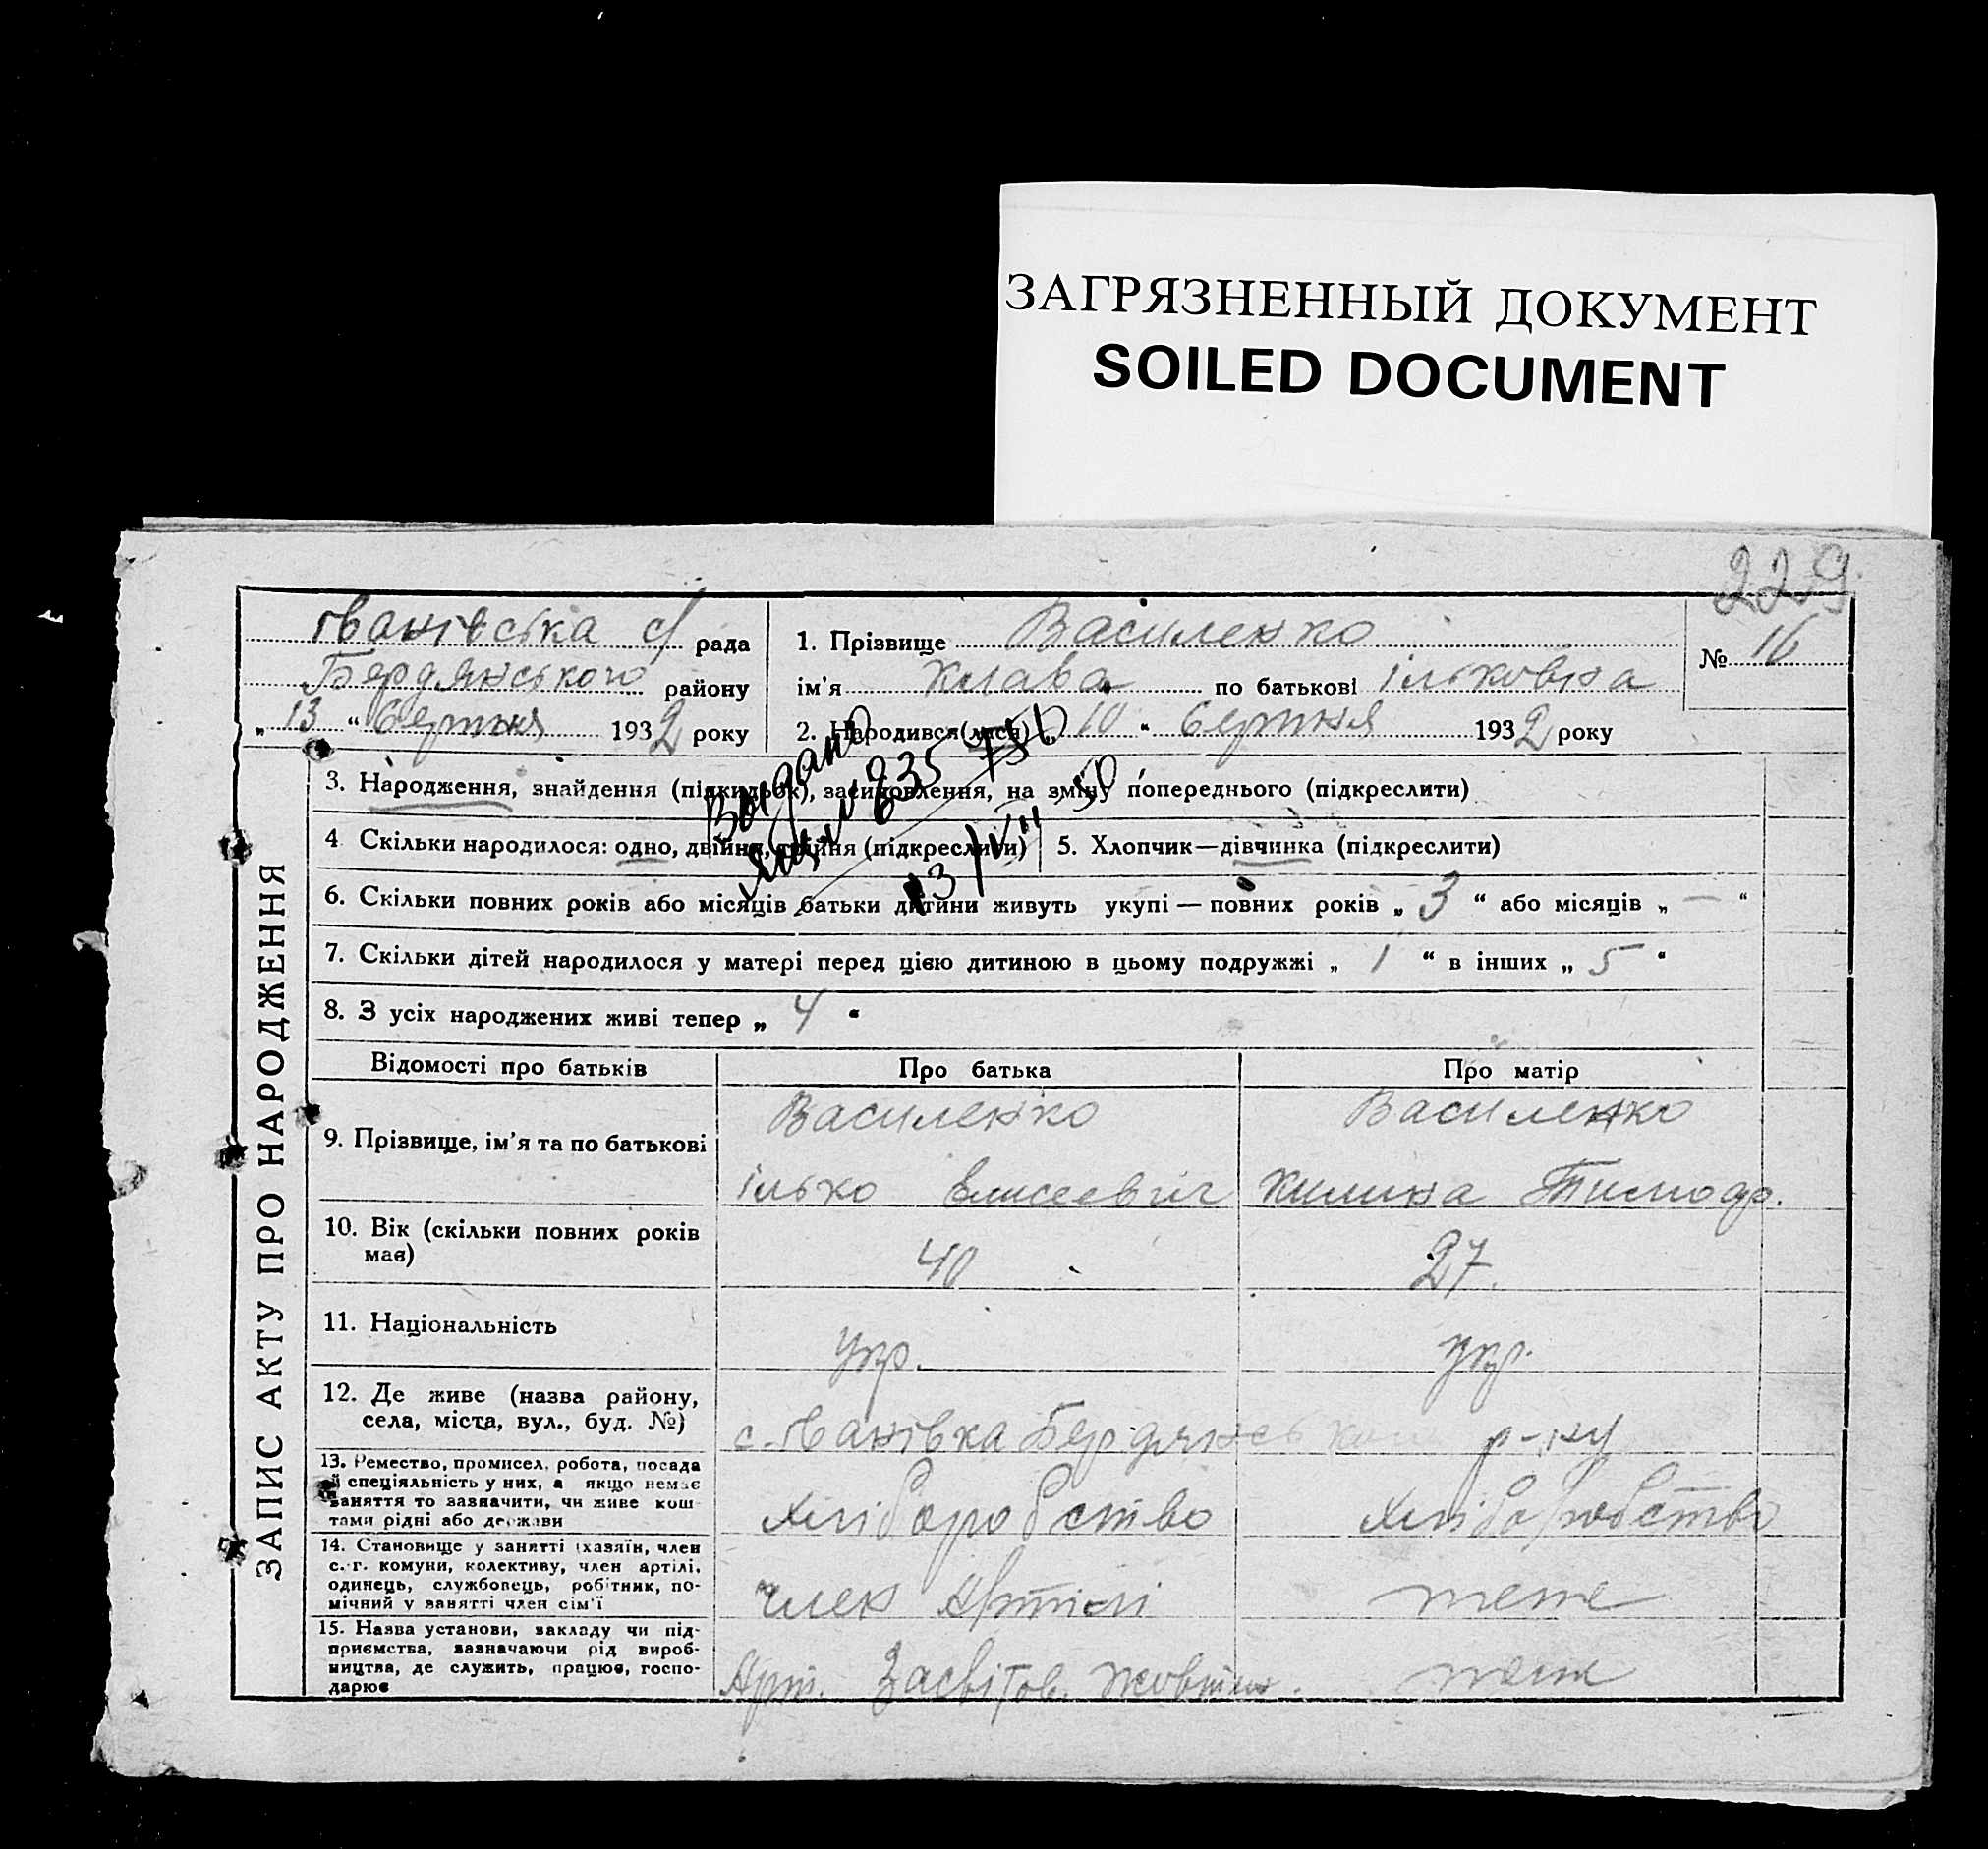 ЗАГРЯЗНЕННЫЙ ДОКУМЕНТ
SOILED DOCUMENT
229
ЗАПИС АКТУ ПРО НАРОДЖЕННЯ
Іванівська с/ рада
Бердянського району
„ 13 “ Серпня 1932 року
1. Прізвище Василенко
ім’я Клава по батькові Ільковна
2. Народився(лася) „ 10 “ Серпня 1932 року
№ 16
Выдано
235
13/VII 50
3. Народження, знайдення (підкидьок), засиновлення, на зміну попереднього (підкреслити)
4 Скільки народилося: одно, двійня, трійня (підкреслити)
5. Хлопчик—дівчинка (підкреслити)
6. Скільки повних років або місяців батьки дитини живуть укупі — повних років „ 3 “ або місяців „ — “
7. Скільки дітей народилося у матері перед цією дитиною в цьому подружжі „ 1 “ в інших „ 5 “
8. З усіх народжених живі тепер „ 4 “
Відомості про батьків Про батька Про матір
9. Прізвище, ім’я та по батькові
Василенко Василенко
Ілько Елисеевич Килина Тимоф.
10. Вік (скільки повних років
має)
40 27.
11. Національність
укр. укр.
12. Де живе (назва району,
села, міста, вул., буд. №)
с. Іванівка Бердянського р-ну
13. Ремество, промисел, робота, посада
й спеціяльність у них, а якщо немає
заняття то зазначити, чи живе кош-
тами рідні або держави
Хліборобство Хліборобство
14. Становище у занятті (хазяїн, член
с.-г. комуни, колективу, член артілі,
одинець, службовець, робітник, по-
мічний у занятті член сім’ї
член Артілі теже
15. Назва установи, закладу чи під-
приємства, зазначаючи рід вироб-
ництва, де служить, працює, госпо-
дарює
Арт. Засвітов. Жовтн. теж